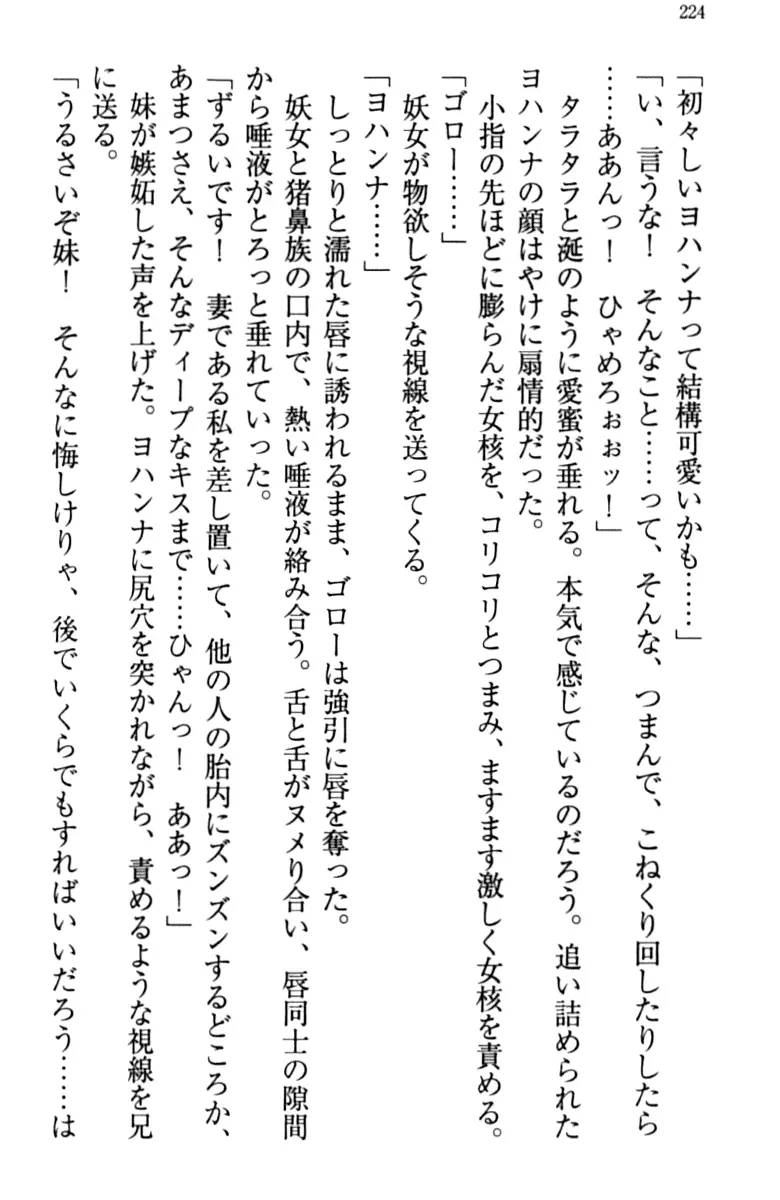 224
「初々しいヨハンナって結構可愛いかも……」
「い、言うな！　そんなこと……って、そんな、つまんで、こねくり回したりしたら
……ああんっ！　ひゃめろぉぉッ！」
　タラタラと涎のように愛蜜が垂れる。本気で感じているのだろう。追い詰められた
ヨハンナの顔はやけに扇情的だった。
　小指の先ほどに膨らんだ女核を、コリコリとつまみ、ますます激しく女核を責める。
「ゴロー……」
　妖女が物欲しそうな視線を送ってくる。
「ヨハンナ……」
　しっとりと濡れた唇に誘われるまま、ゴローは強引に唇を奪った。
　妖女と猪鼻族の口内で、熱い唾液が絡み合う。舌と舌がヌメり合い、唇同士の隙間
から唾液がとろっと垂れていった。
「ずるいです！　妻である私を差し置いて、他の人の胎内にズンズンするどころか、
あまつさえ、そんなディープなキスまで……ひゃんっ！　ああっ！」
　妹が嫉妬した声を上げた。ヨハンナに尻穴を突かれながら、責めるような視線を兄
に送る。
「うるさいぞ妹！　そんなに悔しけりゃ、後でいくらでもすればいいだろう……は